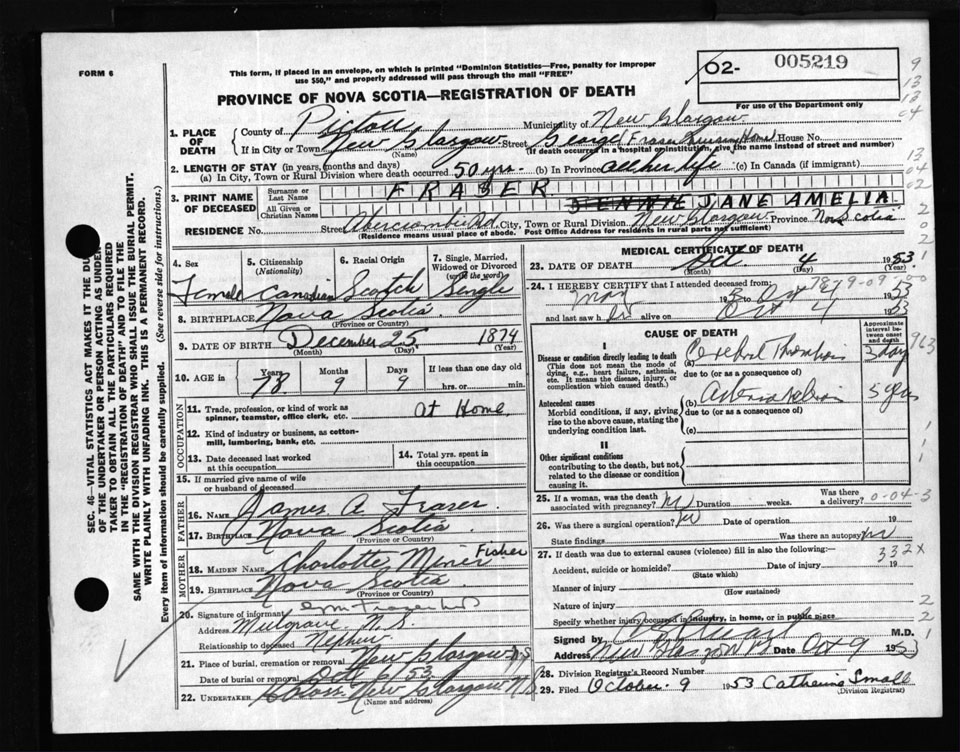 FORM 6
This form, if placed in an envelope, on which is printed "Dominion Statistics—Free, penalty for improper
use $50," and properly addressed will pass through the mail "FREE"
PROVINCE OF NOVA SCOTIA—REGISTRATION OF DEATH
02- 005219
For use of the Department only
9
13
13
04
13
04
02
2
0
2
1
1. PLACE OF DEATH
County of Pictou Municipality of New Glasgow
If in City or Town New Glasgow Street George (Fraser Nursing Home) House No.
(Name) (If death occurred in a hospital or institution, give the name instead of street and number)
2. LENGTH OF STAY (in years, months and days)
(a) In City, Town or Rural Division where death occurred 50 yrs. (b) In Province all her life (c) In Canada (if immigrant)
3. PRINT NAME OF DECEASED
Surname or Last Name FRASER
All Given or Christian Names JENNIE JANE AMELIA
RESIDENCE No. Street Abercrombie Rd. City, Town or Rural Division New Glasgow Province Nova Scotia
(Residence means usual place of abode. Post Office Address for residents in rural parts not sufficient)
SEC. 46—VITAL STATISTICS ACT MAKES IT THE DU
OF THE UNDERTAKER OR PERSON ACTING AS UNDER-
TAKER TO OBTAIN ALL THE PARTICULARS REQUIRED
IN THE "REGISTRATION OF DEATH" AND TO FILE THE
SAME WITH THE DIVISION REGISTRAR WHO SHALL ISSUE THE BURIAL PERMIT.
WRITE PLAINLY WITH UNFADING INK. THIS IS A PERMANENT RECORD.
Every item of information should be carefully supplied. (See reverse side for instructions.)
4. Sex Female
5. Citizenship (Nationality) Canadian
6. Racial Origin Scotch
7. Single, Married, Widowed or Divorced (Write the word) Single
8. BIRTHPLACE Nova Scotia
(Province or Country)
9. DATE OF BIRTH December 25 1874
(Month) (Day) (Year)
10. AGE in Years 78 Months 9 Days 9 If less than one day old
hrs. or min.
OCCUPATION
11. Trade, profession, or kind of work as
spinner, teamster, office clerk, etc. at Home
12. Kind of industry or business, as cotton-
mill, lumbering, bank, etc.
13. Date deceased last worked
at this occupation
14. Total yrs. spent in
this occupation
15. If married give name of wife
or husband of deceased
FATHER
16. Name James A Fraser
17. Birthplace Nova Scotia
(Province or Country)
MOTHER
18. Maiden Name Charlotte Minir Fisher
19. Birthplace Nova Scotia
(Province or Country)
20. Signature of informant
Address Mulgrave N.S.
Relationship to deceased Nephew
21. Place of burial, cremation or removal New Glasgow N.S
Date of burial or removal Oct 6/53
22. Undertaker New Glasgow N.S
(Name and address)
MEDICAL CERTIFICATE OF DEATH
23. DATE OF DEATH Oct. 4 1953
(Month) (Day) (Year)
24. I HEREBY CERTIFY that I attended deceased from:
May 1953 Oct 4 1953
7879-09-0
and last saw her alive on Oct 4 1953
CAUSE OF DEATH
Approximate interval between onset and death
963
I
Disease or condition directly leading to death
(This does not mean the mode of
dying, e.g., heart failure, asthenia,
etc. It means the disease, injury, or
complication which caused death.)
(a) Cerebral Thrombosis 3 days
due to (or as a consequence of)
Antecedent causes
Morbid conditions, if any, giving
rise to the above cause, stating the
underlying condition last.
(b) Arteriosclerosis 5 yrs
due to (or as a consequence of)
(c)
1
1
II
Other significant conditions
contributing to the death, but not
related to the disease or condition
causing it.
25. If a woman, was the death
associated with pregnancy? No Duration weeks. Was there a delivery? 0-04-3
26. Was there a surgical operation? No Date of operation 19
State findings Was there an autopsy? no
332X
27. If death was due to external causes (violence) fill in also the following:—
Accident, suicide or homicide? Date of injury 19
(State which)
Manner of injury
(How sustained)
Nature of injury 2
Specify whether injury occurred in industry, in home, or in public place 2
Signed by M.D. 1
Address New Glasgow NS. Date Oct-9 1953
28. Division Registrar's Record Number
29. Filed October. 9 1953 Catherine Small
(Division Registrar)